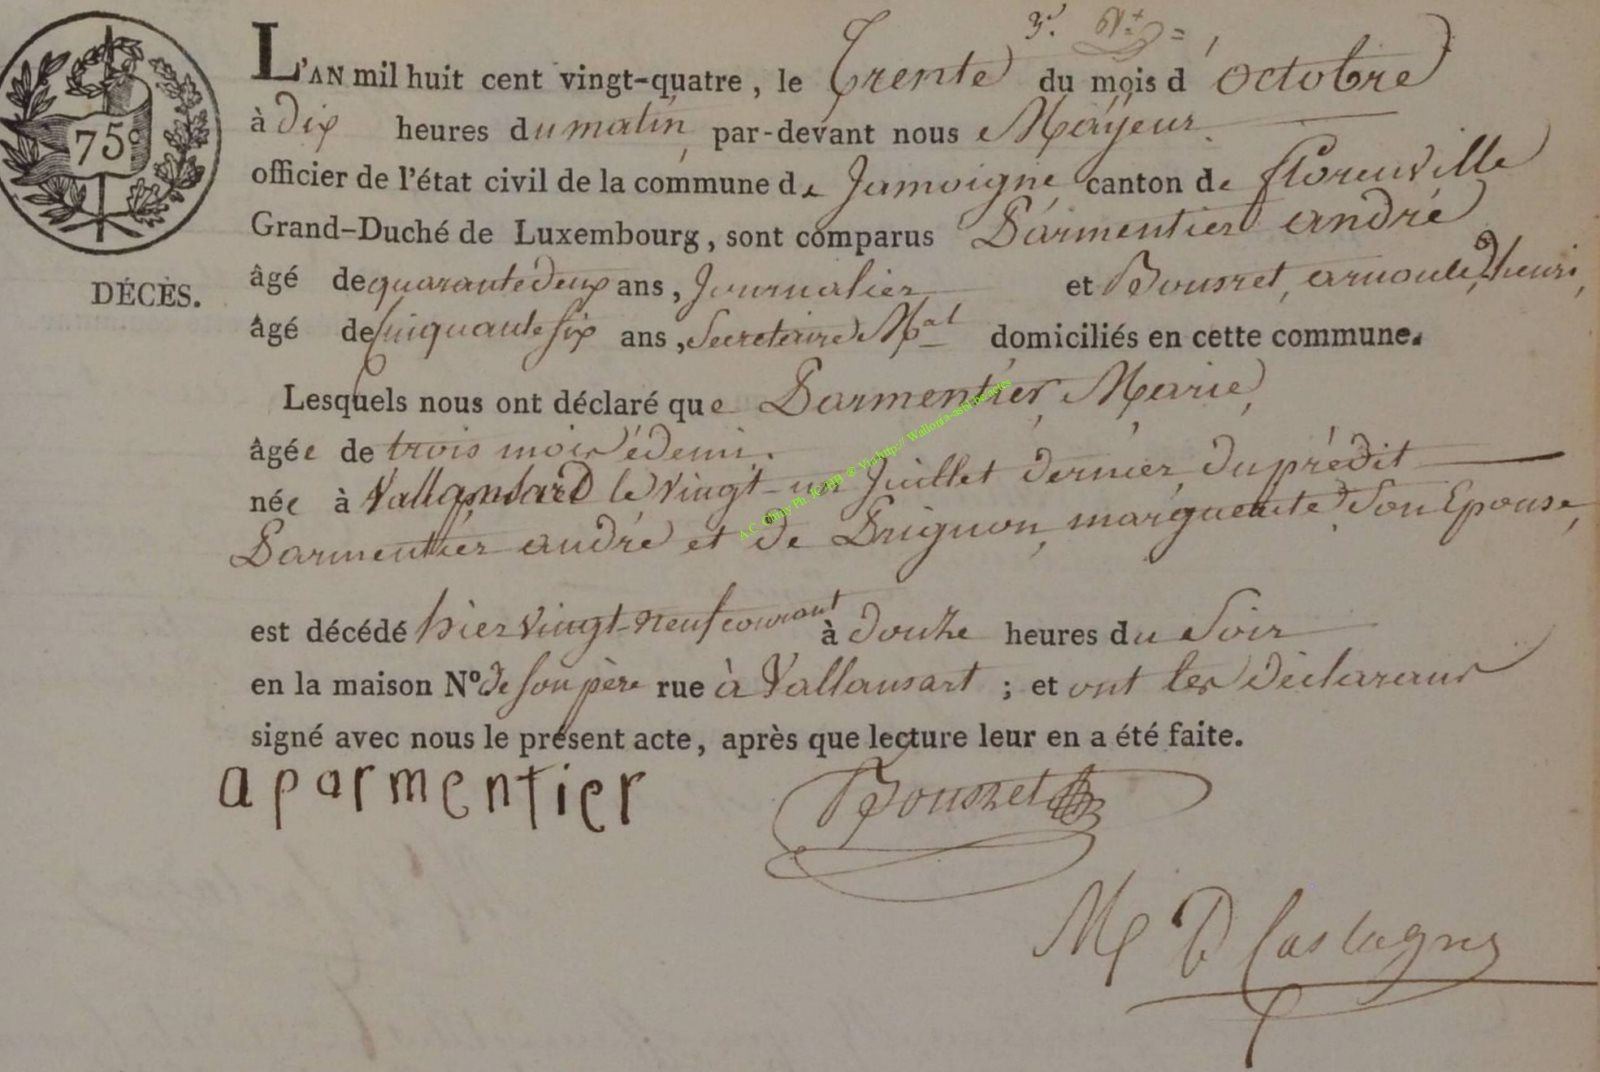 3.
L'AN mil huit cent vingt-quatre, le Trente du mois d'Octobre
75c
à dix heures du matin par-devant nous Mayeur
officier de l'état civil de la commune de Jamoigne canton de florenville
Grand-Duché de Luxembourg, sont comparus Parmentier andré
DÉCÈS.
âgé de quarante deux ans, Journalier et Bousret, arnould henri,
âgé de Cinquante six ans, Secretaire Mal domiciliés en cette commune.
Lesquels nous ont déclaré que Parmentier, Marie,
âgée de trois mois é demi.
née à Vallansard le vingt-un Juillet dernier, du prédit
Parmentier andré et de Prignon, marguerite, Son Epouse,
est décédé hier vingt-neuf courant à douze heures du Soir
en la maison No de son père rue à Vallansart ; et ont les déclarans
signé avec nous le présent acte, après que lecture leur en a été faite.
a parmentier
Bousret